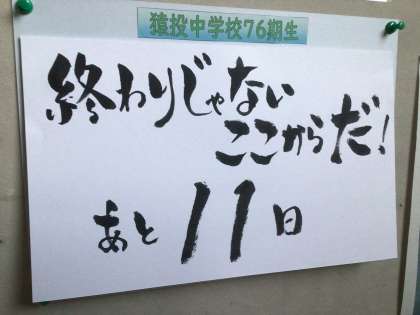 猿投中学校76期生
終わりじゃない
ここからだ!
あと11日